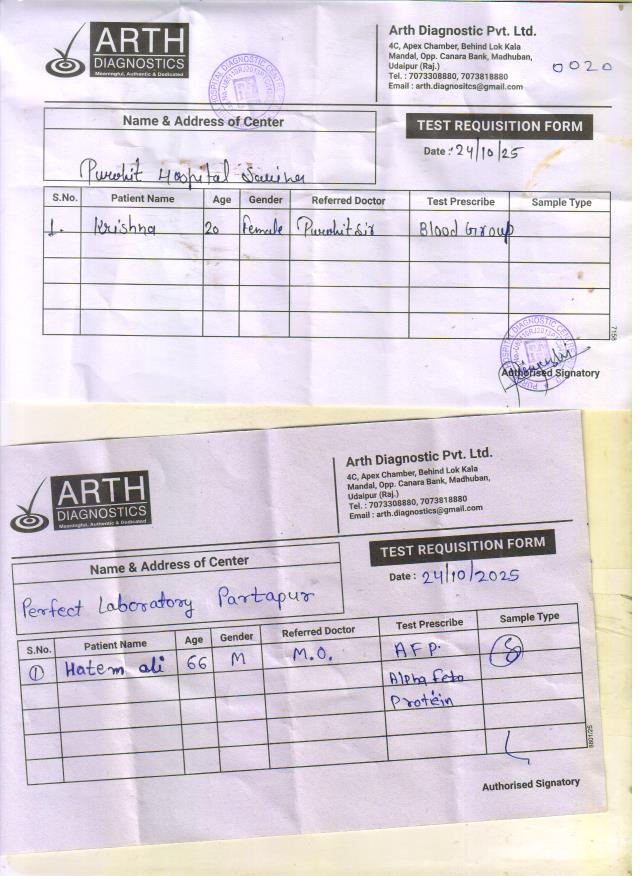 ARTH
DIAGNOSTICS
Meaningful, Authentic & Dedicated
Arth Diagnostic Pvt. Ltd.
4C, Apex Chamber, Behind Lok Kala
Mandal, Opp. Canara Bank, Madhuban,
Udaipur (Raj.)
Tel. : 7073308880, 7073818880
Email : arth.diagnositcs@gmail.com
0020
Name & Address of Center
Purohit Hospital
TEST REQUISITION FORM
Date :- 24/10/25
S.No. Patient Name Age Gender Referred Doctor Test Prescribe Sample Type
1. Krishna 20 Female Purohit Sir Blood Group
7158
Authorised Signatory
ARTH
DIAGNOSTICS
Meaningful, Authentic & Dedicated
Arth Diagnostic Pvt. Ltd.
4C, Apex Chamber, Behind Lok Kala
Mandal, Opp. Canara Bank, Madhuban,
Udaipur (Raj.)
Tel. : 7073308880, 7073818880
Email : arth.diagnostics@gmail.com
Name & Address of Center
Perfect Laboratory Partapur
TEST REQUISITION FORM
Date : 24/10/2025
S.No. Patient Name Age Gender Referred Doctor Test Prescribe Sample Type
1 Hatem ali 66 M M.O. AFP.
Alpha feto
Protein
8801/25
Authorised Signatory